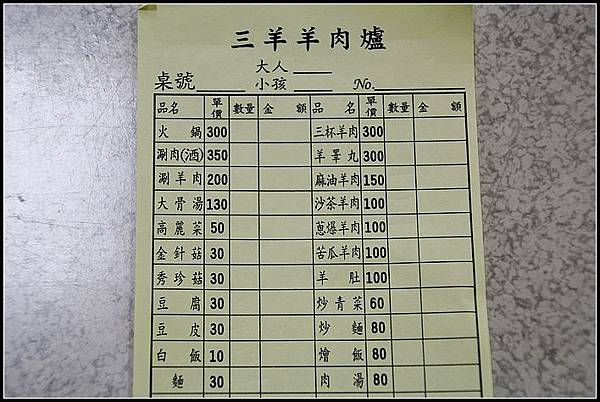 三羊羊肉爐
大人
桌號 小孩 No.
品名 單價 數量 金額 品名 單價 數量 金額
火鍋 300 三杯羊肉 300
涮肉(酒) 350 羊睪丸 300
涮羊肉 200 麻油羊肉 150
大骨湯 130 沙茶羊肉 100
高麗菜 50 蔥爆羊肉 100
金針菇 30 苦瓜羊肉 100
秀珍菇 30 羊肚 100
豆腐 30 炒青菜 60
豆皮 30 炒麵 80
白飯 10 燴飯 80
麵 30 肉湯 80